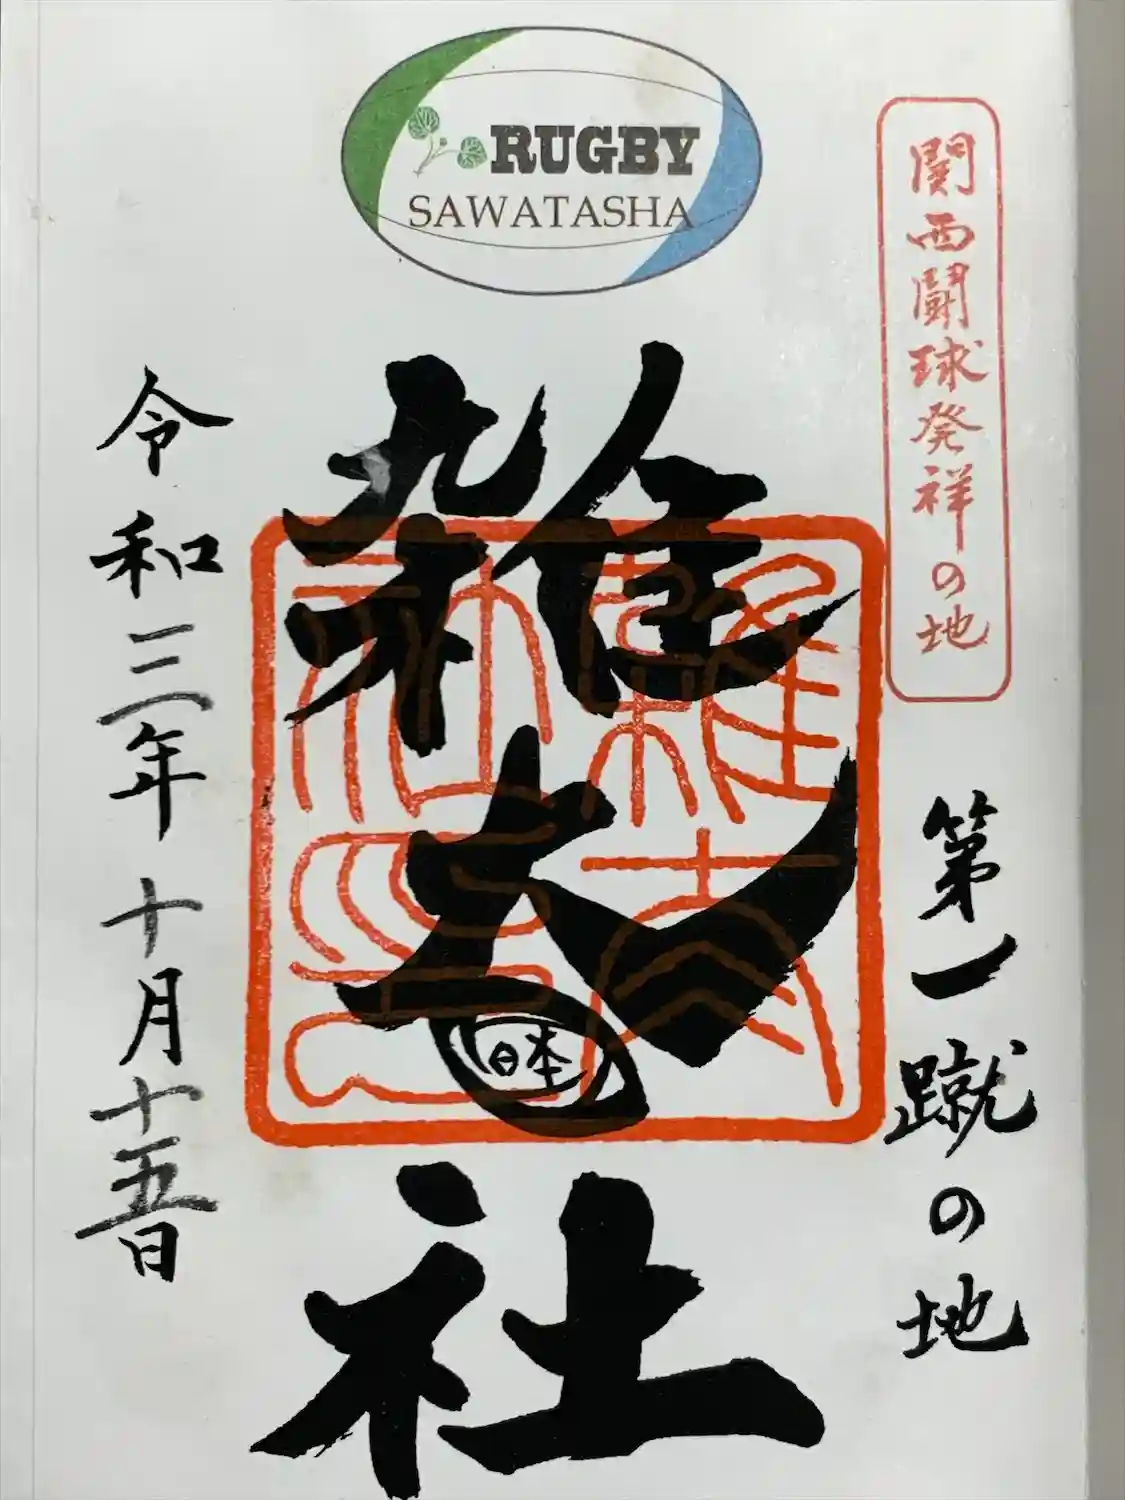 RUGBY
SAWATASHA
関西闘球発祥の地
第一蹴の地
雑太社
日本
令和三年十月十五日